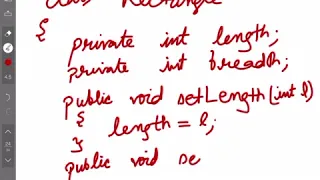 class Rectangle
{
private int length;
private int breadth;
public void setLength(int l)
{
length = l;
}
public void se